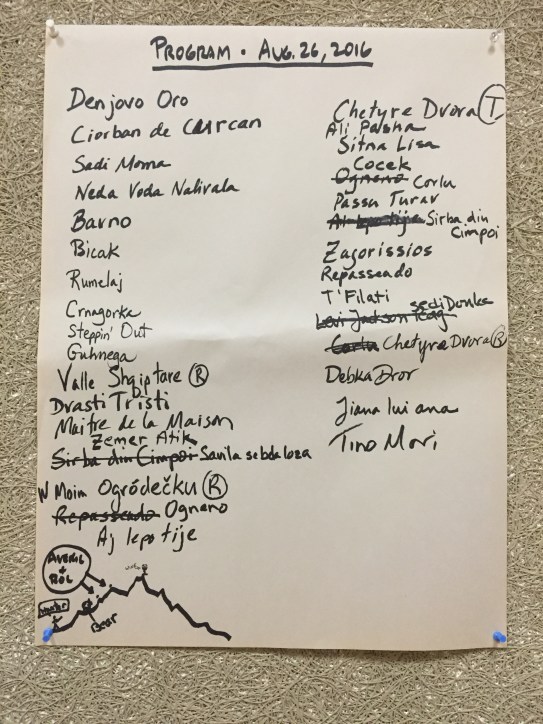 PROGRAM • AUG. 26, 2016
Denjovo Oro
Ciorban de Curcan
Sadi Moma
Neda Voda Nalivala
Bavno
Bicak
Rumelaj
Crnagorka
Steppin' Out
Guhnega
Valle Shqiptare R
Drasti Tristi
Maitre de la Maison
Zemer Atik
Sirba din Cimpoi Savila se bela loza
W Moim Ogródečku R
Repasseado Ognano
Aj lepo tije
AVERIL + ROL
Bear
Chetyre Dvora T
Ali Pasha
Sitna Lisa
Cocek
Ognano Corlu
Passu Turav
Aj lepo tije Sirba din
Cimpoi
Zagorissios
Repasseado
T'Filati
Levi Jackson Rag Sedi Donka
Corlu Chetyre Dvora R
Debka Dror
Jiana lui ana
Tino Mori